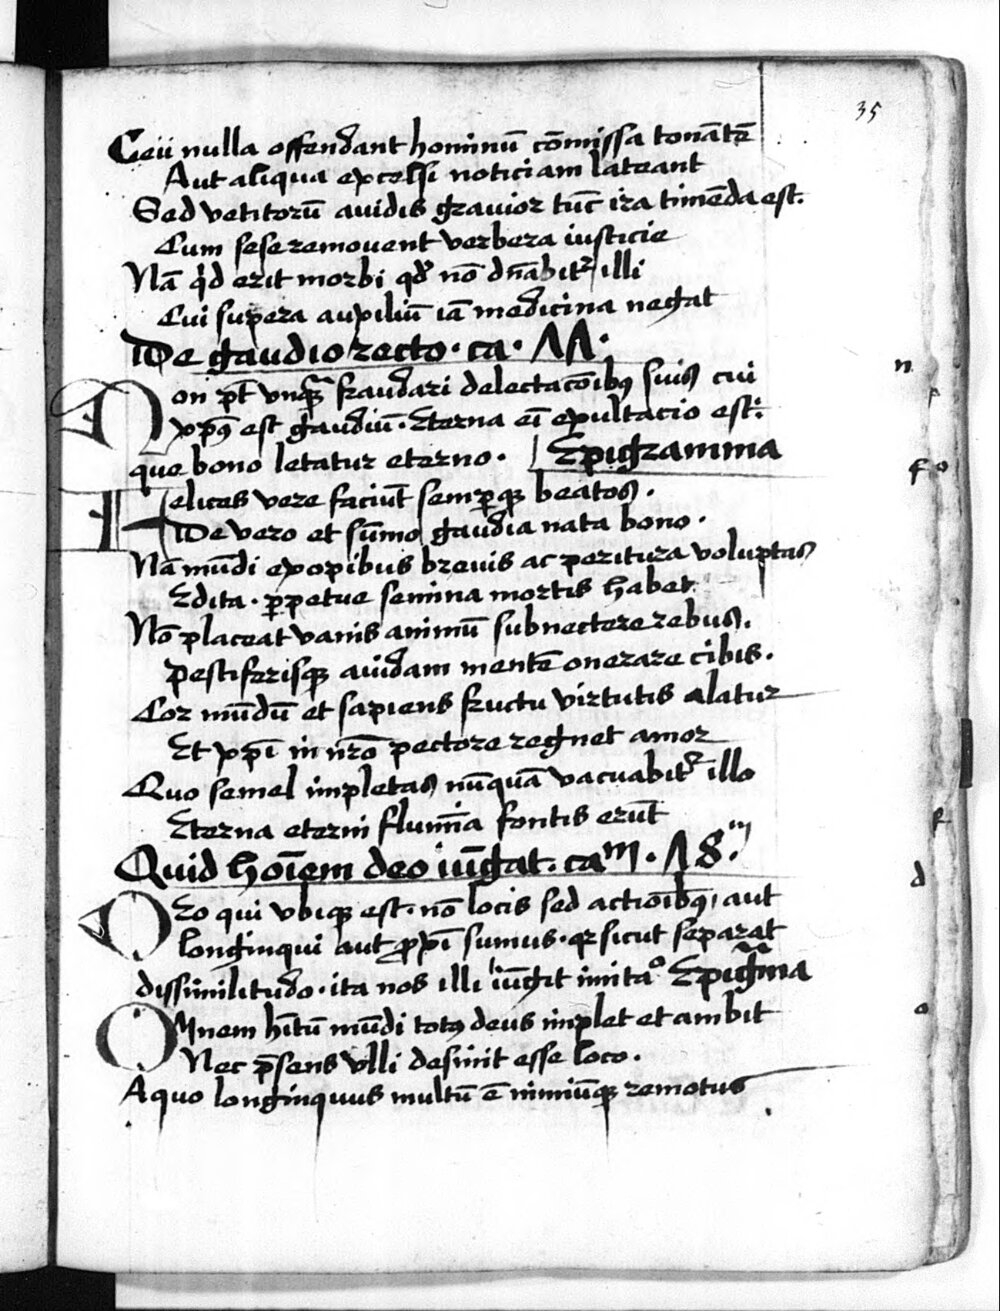 35
Ceū nulla offendant hominū cōmissa tonātē
Aut aliqua excelsi noticiam lateant
Sed vetitorū auidis grauior tūc ira timēda est.
Cum sese remouent verbera iusticie
Nā qͥd erit morbi qđ nō dn̄abitᷣ illi
Cui supera auxiliū iā medicina negat
De gaudio recto. ca. 17.
n
Non pt̄ vnqᷓ fraudari delectacōibꝫ suis cui
xp̄ꝰ est gaudiū. Eterna eī exultacio est:
que bono letatur eterno. Epigramma
fo
Felices vere faciūt semꝑqꝫ beatos.
De vero et sūmo gaudia nata bono.
Nā mūdi ex opibus breuis ac peritura voluptas
Edita. ꝑpetue semina mortis habet
Nō placeat vanis animū subnectere rebus.
Pestiferisqꝫ auidam mentē onerare cibis.
Cor mūdū et sapiens fructu virtutis alatur
Et xp̄i in nr̄o pectore regnet amor
Quo semel impletas nūquā vacuabitᷣ illo
Eterna eterni flumīa fontis erūt
Quid hoīem deo iūgat. caᵐ. 18.
d
Deo qui vbiqꝫ est. nō locis sed actiōibꝫ, aut
longinqui aut ꝓpī sumus. qꝛ sicut separat
dissimilitudo. ita nos illi iūgit imitaᵒ Epigr̄ma
o
Omnem hītū mūdi totꝰ deus implet et ambit
Nec p̄sens vlli desinit esse loco.
A quo longinquus multū ē nimiūqꝫ remotus